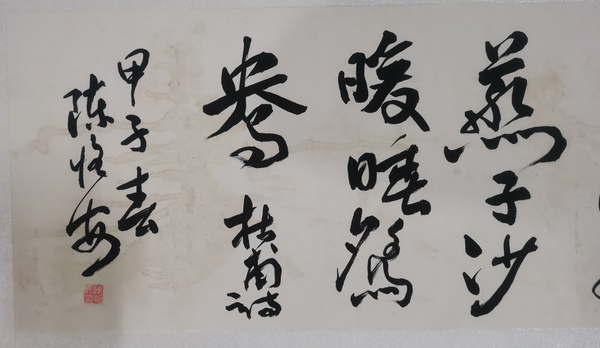 燕子沙
暖睡鴛
鴦
杜甫詩
甲子春
陈恒安